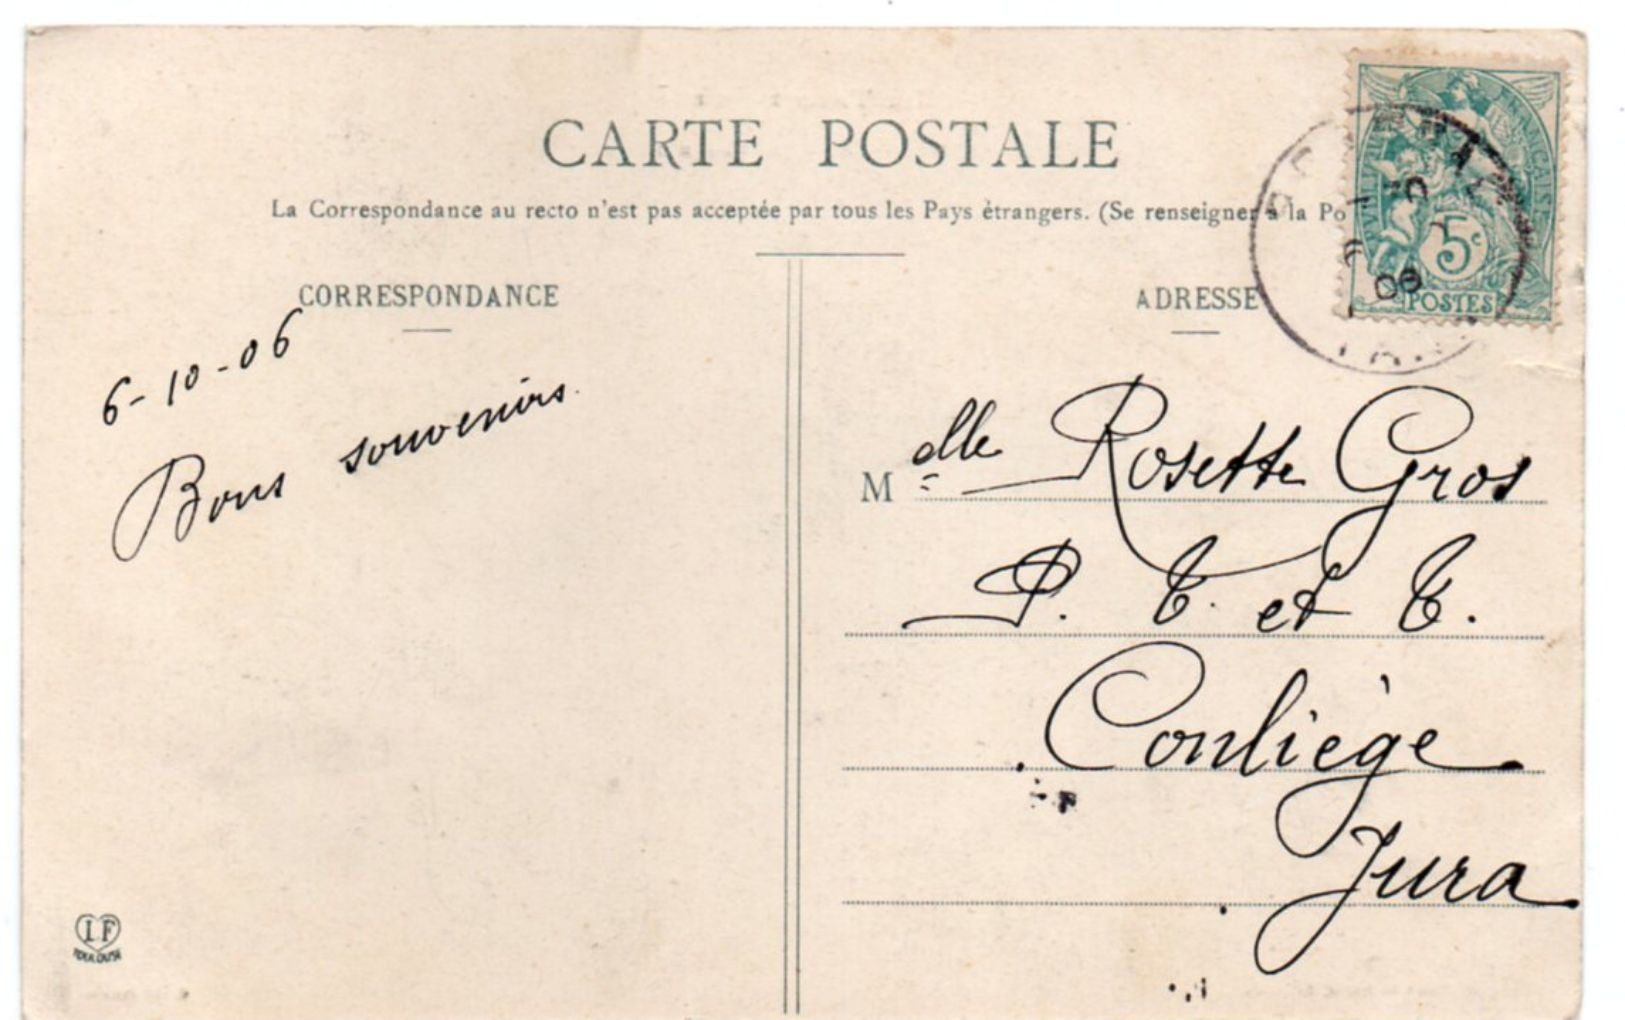 CARTE POSTALE
La Correspondance au recto n'est pas acceptée par tous les Pays étrangers. (Se renseigner à la Po
CORRESPONDANCE
6-10-06
Bons souvenirs.
ADRESSE
5c
06
POSTES
Mdlle Rosette Gros
P. T. et T.
Conliège
Jura
LF
TOULOUSE